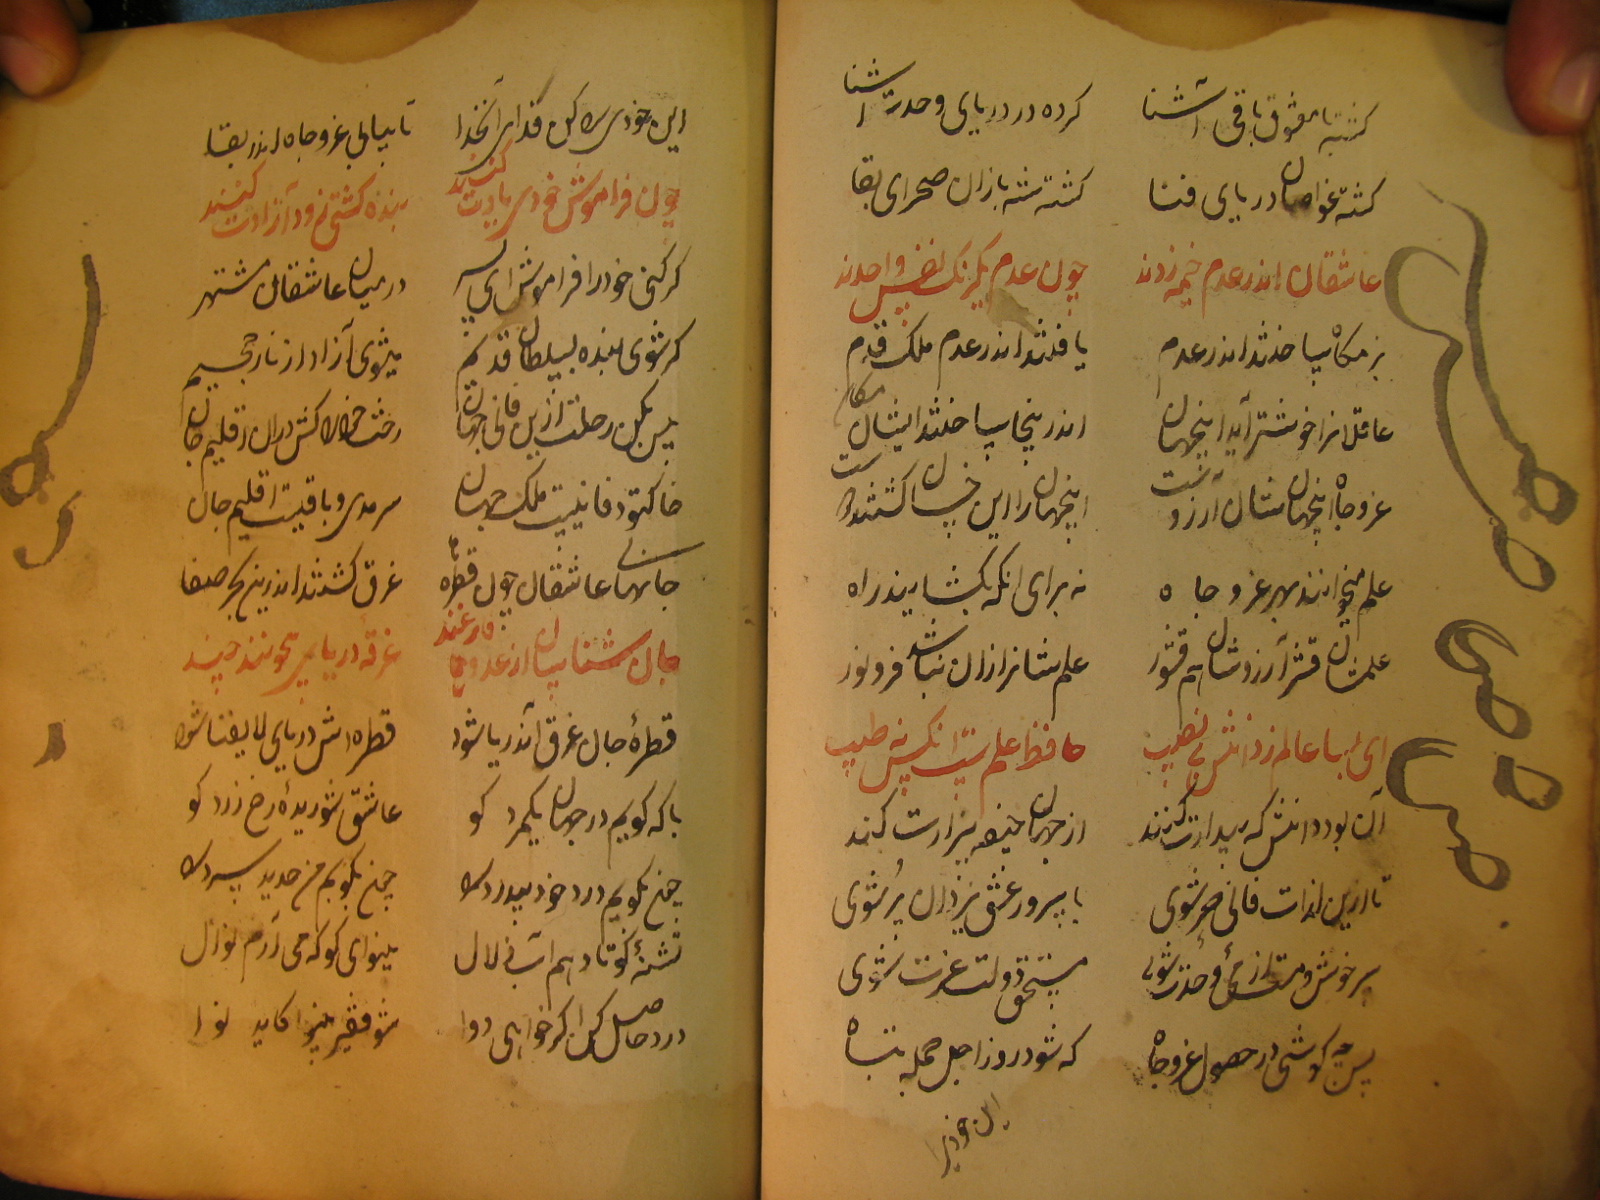 گشته با معشوق باقی آشنا کرده در دریای وحدت آشنا
گشته غواصان دریای فنا گشته شه بازان صحرای بقا
عاشقان اندر عدم خیمه زدند چون عدم یکرنگ نفس واحدند
بزمگاه بیاختند اندر عدم یافتند اندر عدم ملک قدم
عاقلانرا خوشتر آید اینجهان اندرینجا ساختند ایشان مکان
عز و جاه اینجهانشان آرزوست اینجهانرا این خسان
علم میخوانند بهر عز و جاه نه برای انکه بکشایند راه
علمشان قشر آرزوشان هم قشور علم شانرا زان نباشد فر و نور
ای بسا عالم ز دانش بی نصیب حافظ علمست انکس نه طبیب
آن بود دانش که بیدارت کند از جهان جیفه بیزارت کند
تا ازین لذات فانی برشوی با پر و در عشق یزدان پرشوی
سرخوش و مست از می وحدت شوی مستحق دولت عزت شوی
پس چه کوشی در حصول عز و جاه که شود روز اجل جمله تباه
این خودیرا
این خودی را کن فدای آنخدا تا بیابی عز و جاه اندر بقا
چون فراموش خودی یادت کنند بنده گشتی زود آزادت کنند
گر کنی خود را فراموش ای پسر در میان عاشقان مشتهر
گر شوی بنده بسلطان قدیم میشوی آزاد از نار جحیم
پس بکن رحلت ازین فانی جهان رخت خود را کش در آن اقلیم جان
خاک تود فانیست ملک جهان سرمدی و باقیست اقلیم جان
جانهای عاشقان چون قطره‌ها غرق گشتند اندرین بحر صفا
جان شناسان از عددها فارغند غرقه دریای بیچونند و چند
قطرهٔ جان غرق آندریا شود قطره‌اش دریای لایفنا شود
با که گویم در جهان یکمرد کو عاشق شوریدهٔ رخ زرد کو
چون نگویم درد خود بیدرد را چون بگویم من حدید سرد را
تشنهٔ کو تا دهم آب زلال بینوای کو که می آرم نوال
درد حاصل کن اگر خواهی دوا شو فقیر بینوا کاید نوا